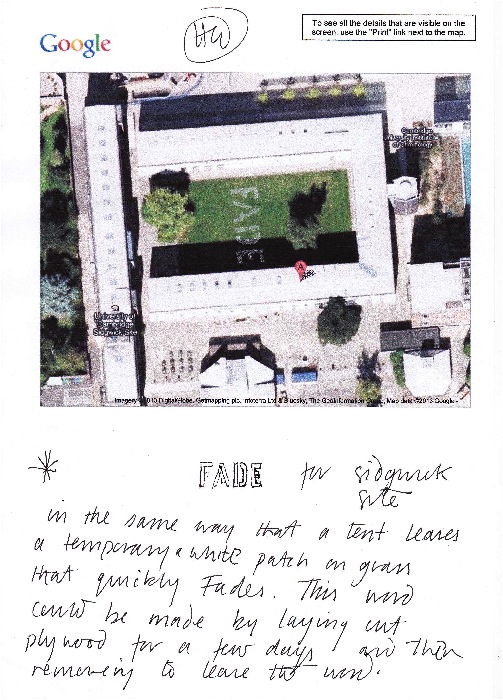 Google
HW
To see all the details that are visible on the
screen, use the "Print" link next to the map.
FADE
A
University of
Cambridge
Sidgwick Site
Imagery ©2013 DigitalGlobe, Getmapping plc, Infoterra Ltd & Bluesky, The GeoInformation Group, Map data ©2013 Google -
* FADE for sidgwick
site
in the same way that a tent leaves
a temporary white patch on grass
that quickly Fades. This word
could be made by laying out
plywood for a few days and then
removeing to leave the word.